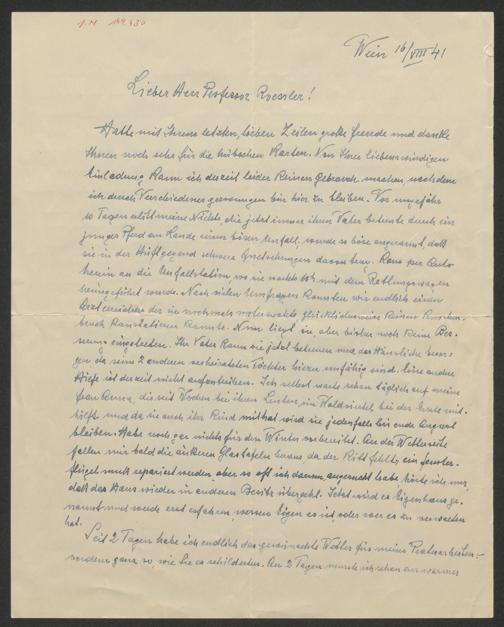 I.N. 149.430
Wien 16/VIII 41
Lieber Herr Professor Roessler!
Hatte mit Ihren letzten, lieben Zeilen große Freude und danke
Ihnen noch sehr für die hübschen Karten. Von Ihrer liebenswürdigen
Einladung kann ich derzeit leider keinen Gebrauch machen, nachdem
ich durch Verschiedenes gezwungen bin hier zu bleiben. Vor ungefähr
10 Tagen erlitt meine Nichte, die jetzt immer ihren Vater betreute durch ein
junges Pferd am Lande einen bösen Unfall, wurde so böse angerannt, daß
sie in der Hüftgegend schwere Quetschungen davontrug. Kam per Auto
herein an die Unfallstation, wo sie nachts mit dem Rettungswagen
heimgeführt wurde. Nach vielen Umfragen konnten wir endlich einen
Arzt erreichen der sie nochmals untersuchte, glücklicherweise keinen Knochen-
bruch konstatieren konnte. Nun liegt sie, aber bisher noch keine Bes-
serung eingetreten. Ihr Vater kann sie jetzt betreuen und das Häusliche besor-
gen da seine 2 anderen verheirateten Töchter hiezu unfähig sind. Eine andere
Hilfe ist derzeit nicht aufzutreiben. Ich selbst warte schon täglich auf meine
Frau Anna, die seit Wochen bei ihren Leuten, im Waldviertel bei der Ernte mit-
hilft und da sie auch ihr Kind mithat wird sie jedenfalls bis ende August
bleiben. Habe noch gar nichts für den Winter vorbereitet. An der Wetterseite
fallen mir bald die äußeren Glastafeln heraus da der Kitt fehlt, ein Fenster-
flügel muß repariert werden, aber so oft ich darum angesucht habe hörte ich nur,
daß das Haus wieder in anderen Besitz übergeht. Jetzt wird es Eigenhaus ge-
nannt und werde erst erfahren, wessen Eigen es ist, oder wer es zu verwalten
hat.
Seit 2 Tagen habe ich endlich das gewünschte Wetter für meine
sondern ganz so wie Sie es schilderten. An 2 Tagen mußte ich schon